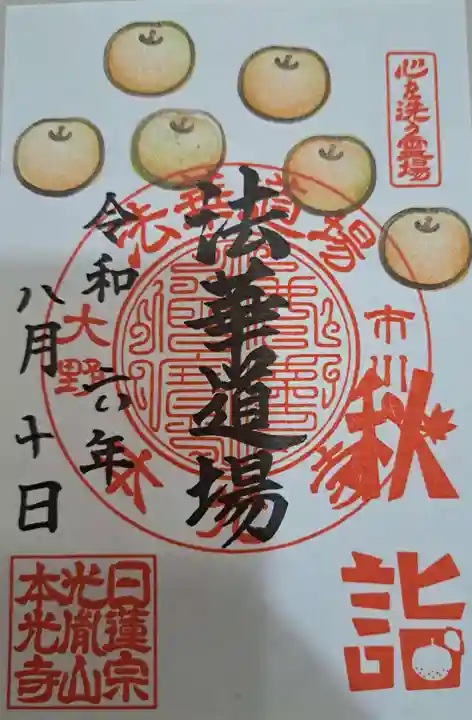 心を洗う霊場
法華道場
市川
大野
本光寺
秋詣
法華道場
令和六年
八月十日
日蓮宗
光胤山
本光寺